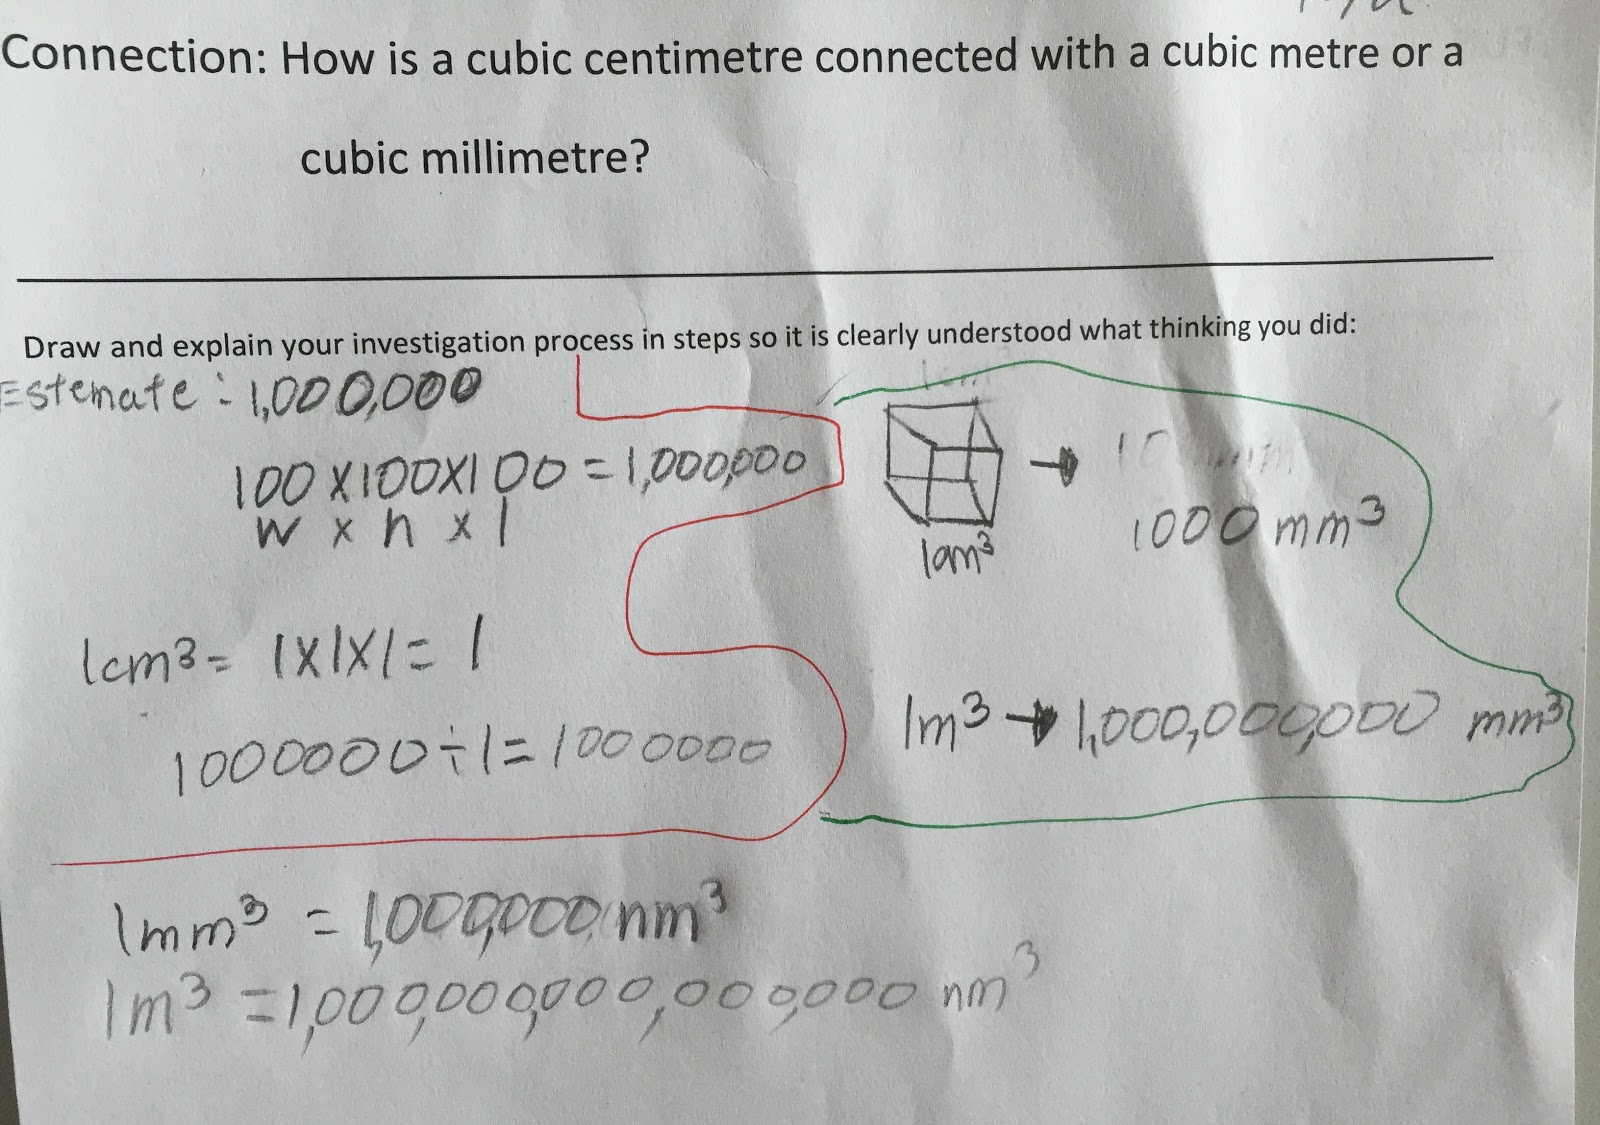 Connection: How is a cubic centimetre connected with a cubic metre or a
cubic millimetre?
Draw and explain your investigation process in steps so it is clearly understood what thinking you did:
Estemate: 1,000,000
100x100x100 = 1,000,000
w x h x l
1cm³ = 1x1x1 = 1
1000000÷1=1000000
1cm³
→
1000 mm³
1m³ → 1,000,000,000 mm³
1mm³ = 1,000,000 nm³
1m³ = 1,000,000,000,000,000 nm³